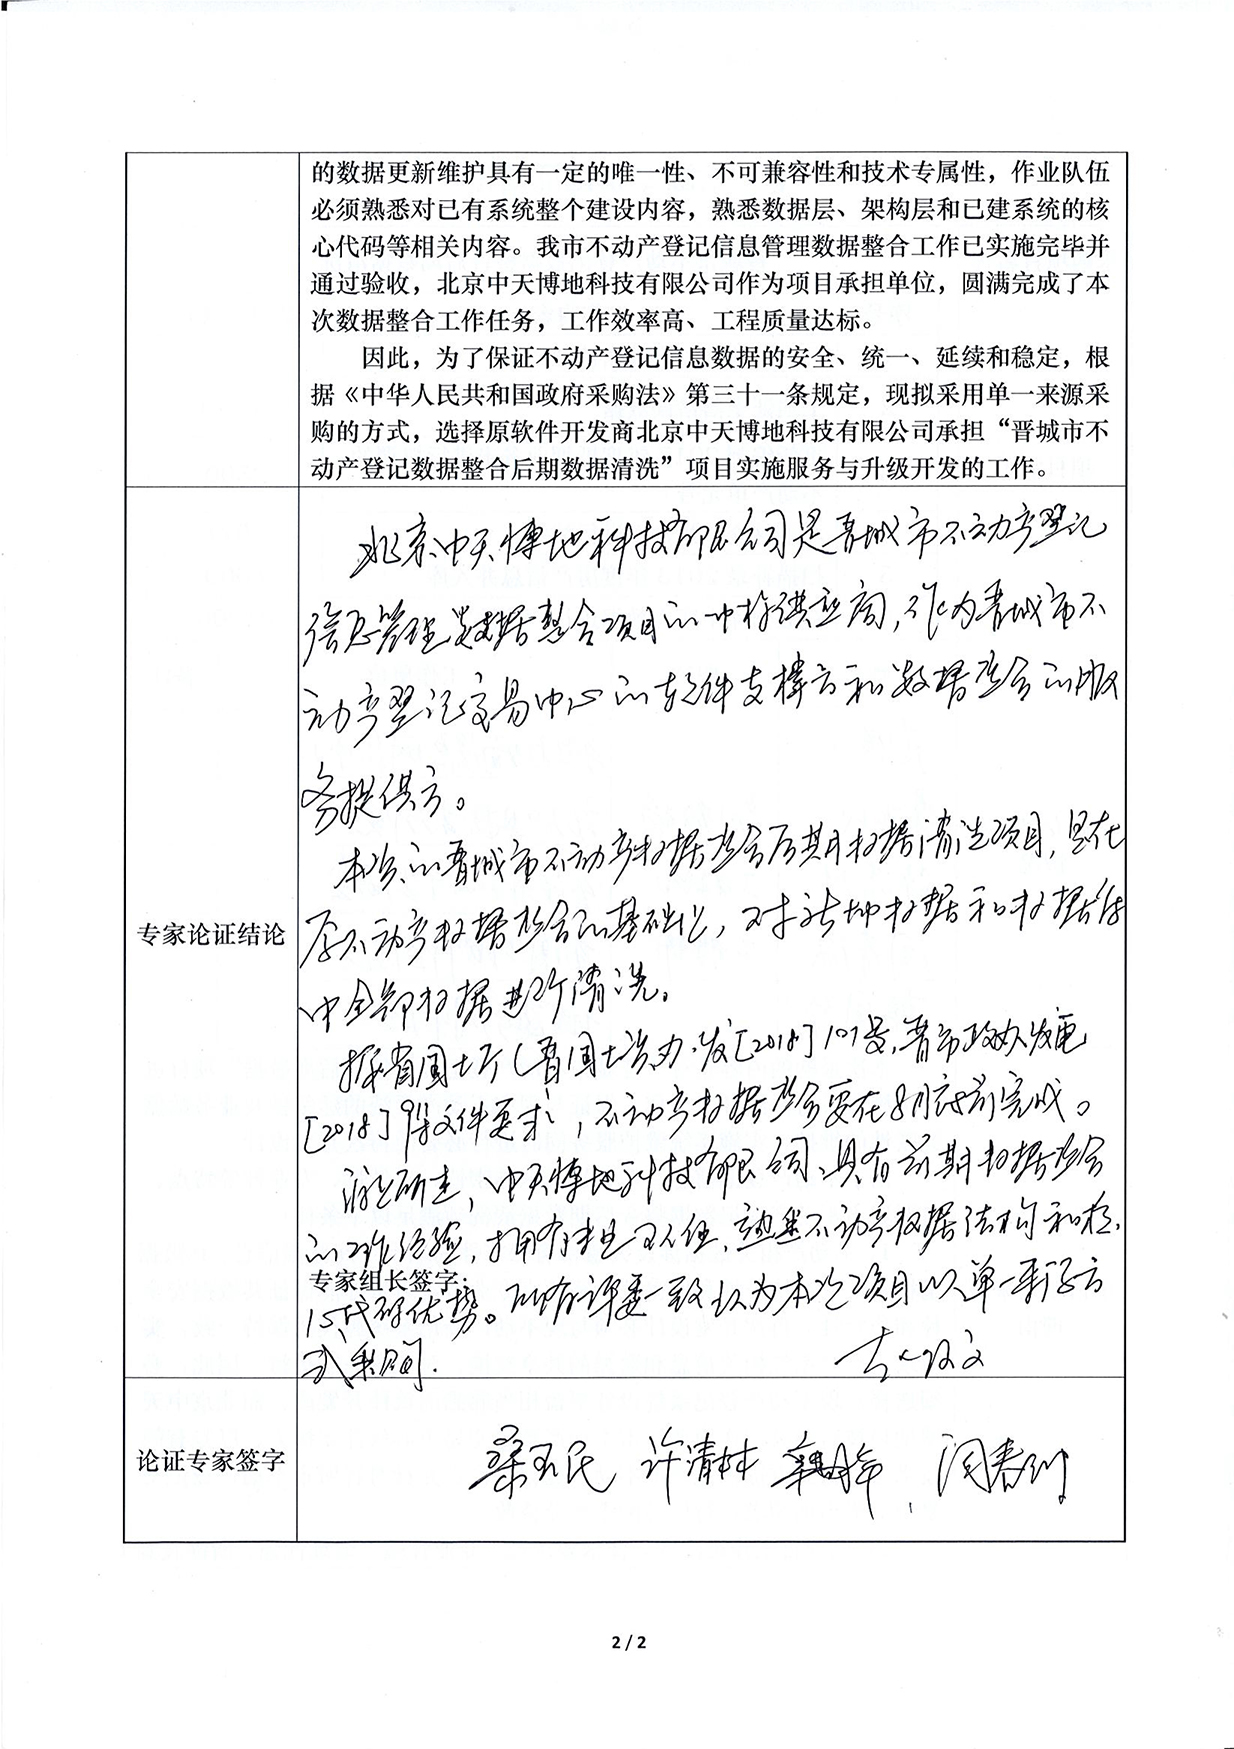 的数据更新维护具有一定的唯一性、不可兼容性和技术专属性，作业队伍
必须熟悉对已有系统整个建设内容，熟悉数据层、架构层和已建系统的核
心代码等相关内容。我市不动产登记信息管理数据整合工作已实施完毕并
通过验收，北京中天博地科技有限公司作为项目承担单位，圆满完成了本
次数据整合工作任务，工作效率高、工程质量达标。
因此，为了保证不动产登记信息数据的安全、统一、延续和稳定，根
据《中华人民共和国政府采购法》第三十一条规定，现拟采用单一来源采
购的方式，选择原软件开发商北京中天博地科技有限公司承担“晋城市不
动产登记数据整合后期数据清洗”项目实施服务与升级开发的工作。
专家论证结论
北京中天博地科技有限公司是晋城市不动产登记
信息管理数据整合项目的中标供应商，作为晋城市不
动产登记交易中心的软件支撑方和数据整合的服
务提供方。
本次的晋城市不动产数据整合后期数据清洗项目，是在
原不动产数据整合的基础上，对数据和数据库
中全部数据进行清洗。
据省国土厅（晋国土资办发[2018]107号，晋市政办发电
[2018]9号文件要求，不动产数据整合要在8月底前完成。
综上所述，中天博地科技有限公司具有前期数据整合
的工作经验，拥有，熟悉不动产数据结构和核
心代码优势。所有评委一致认为本次项目以单一来源方
式采购.
专家组长签字：
论证专家签字
许清林
2 / 2